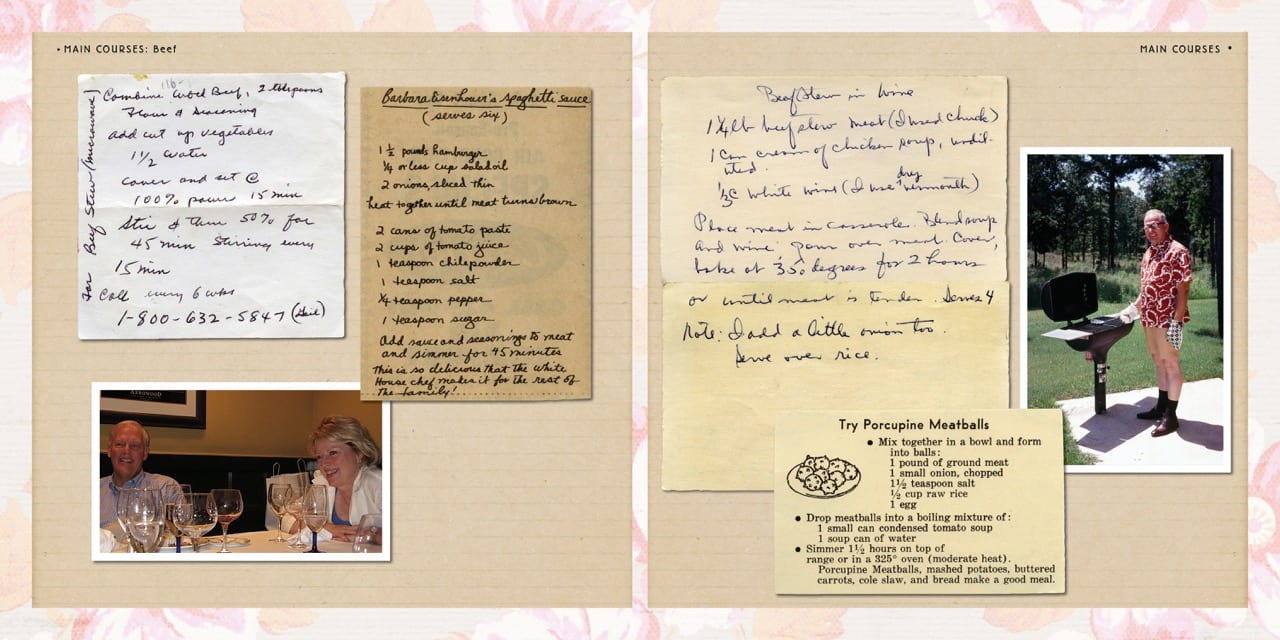 • MAIN COURSES: Beef
For Beef Stew (microwave)
1 lb-
Combine cubed Beef, 2 tablespoons
Flour & Seasoning
add cut up vegetables
1 1/2 water
cover and set @
100% power 15 min
Stir & then 50% for
45 min stirring every
15 min
Call every 6 wks
1-800-632-5847 (Gail)
Barbara Eisenhower's spaghetti sauce
(serves six)
1 1/2 pounds hamburger
1/4 or less cup salad oil
2 onions, sliced thin
heat together until meat turns brown
2 cans of tomato paste
2 cups of tomato juice
1 teaspoon chile powder
1 teaspoon salt
1/4 teaspoon pepper
1 teaspoon sugar
Add sauce and seasonings to meat
and simmer for 45 minutes
This is so delicious that the White
House chef makes it for the rest of
the family!
MAIN COURSES •
Beef Stew in Wine
1 1/4 lb beef stew meat (I used chuck)
1 can cream of chicken soup, undil-
uted.
1/3 c white wine (I use dry vermouth)
Place meat in casserole. Blend soup
and wine pour over meat. Cover,
bake at 350 degrees for 2 hours
or until meat is tender. Serves 4
Note: I add a little onion too.
Serve over rice.
Try Porcupine Meatballs
• Mix together in a bowl and form
into balls:
1 pound of ground meat
1 small onion, chopped
1½ teaspoon salt
½ cup raw rice
1 egg
• Drop meatballs into a boiling mixture of:
1 small can condensed tomato soup
1 soup can of water
• Simmer 1½ hours on top of
range or in a 325° oven (moderate heat).
Porcupine Meatballs, mashed potatoes, buttered
carrots, cole slaw, and bread make a good meal.